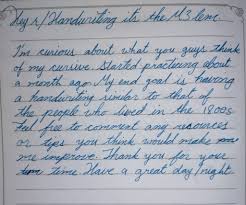 Hey r/Handwriting its the M3 lem
I'm curious about what you guys think
of my cursive. Started practicing about
a month ago. My end goal is having
a handwriting similar to that of
the people who lived in the 1800s
Feel free to comment any resources
or tips you think would make
me improve. Thank you for your
time. Have a great day/night